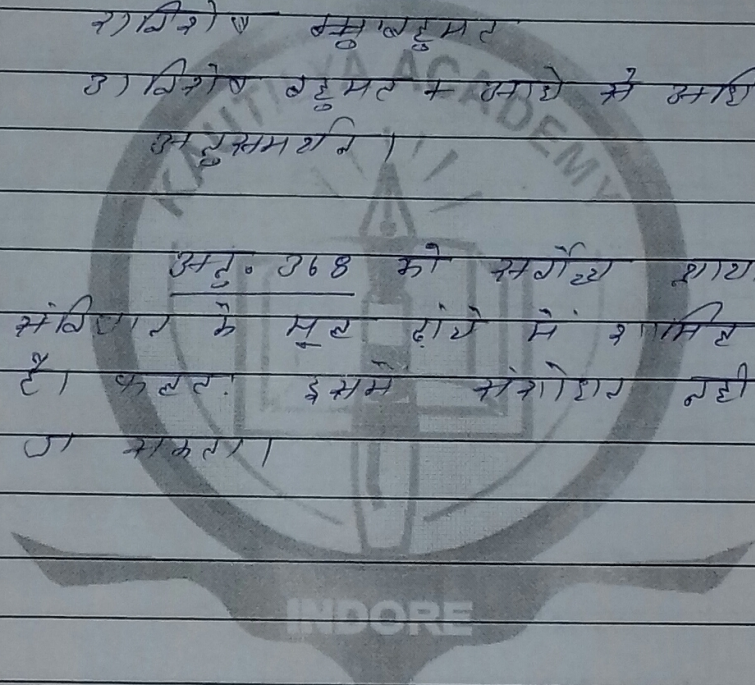 २) विशेष बहुमत
३) विशेष बहुमत + आधे से अधि
अनुसमर्थन।
अनु. ३६८ को सर्वोच्च न्याय
संविधान के मूल ढांचे में शामिल
है। फलतः इसमें संशोधन नहीं
जा सकता।
KAUTILYA ACADEMY
INDORE